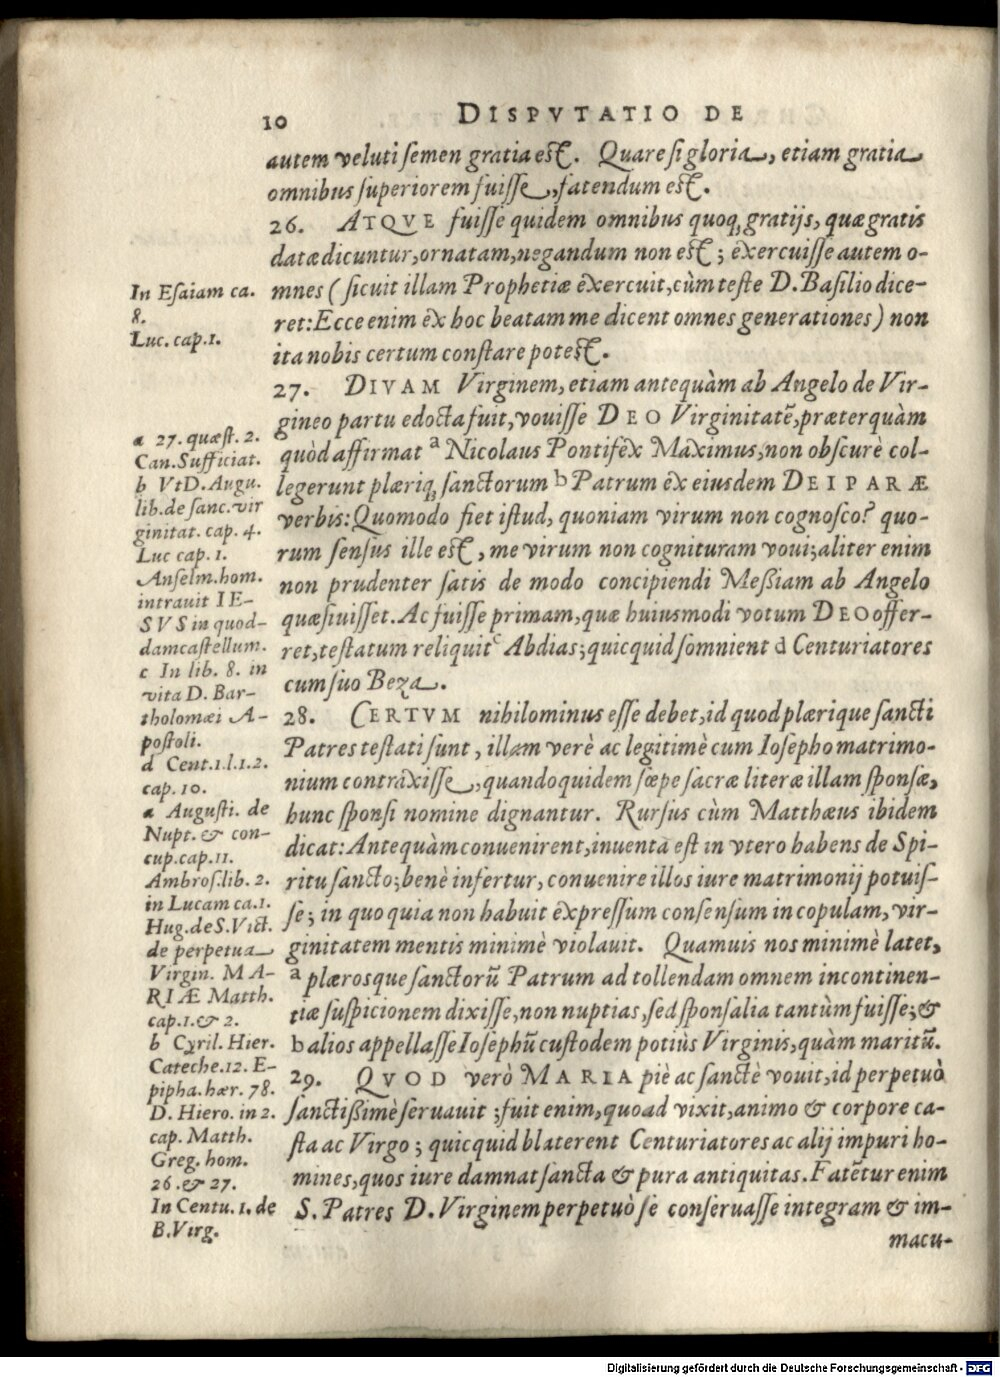 10 DISPVTATIO DE
autem veluti semen gratia est. Quare si gloria, etiam gratia
omnibus superiorem fuisse, fatendum est.
26. ATQVE fuisse quidem omnibus quoq; gratijs, quæ gratis
datæ dicuntur, ornatam, negandum non est; exercuisse autem o-
mnes (sicuit illam Prophetiæ exercuit, cùm teste D. Basilio dice-
ret: Ecce enim ex hoc beatam me dicent omnes generationes) non
ita nobis certum constare potest.
27. DIVAM Virginem, etiam antequàm ab Angelo de Vir-
gineo partu edocta fuit, vouisse DEO Virginitatē, præterquàm
quòd affirmat a Nicolaus Pontifex Maximus, non obscurè col-
legerunt plæriq; sanctorum b Patrum ex eiusdem DEIPARÆ
verbis: Quomodo fiet istud, quoniam virum non cognosco? quo-
rum sensus ille est, me virum non cognituram voui; aliter enim
non prudenter satis de modo concipiendi Meßiam ab Angelo
quæsiuisset. Ac fuisse primam, quæ huiusmodi votum DEO offer-
ret, testatum reliquit c Abdias; quicquid somnient d Centuriatores
cum suo Beza.
28. CERTVM nihilominus esse debet, id quod plærique sancti
Patres testati sunt, illam verè ac legitimè cum Iosepho matrimo-
nium contraxisse, quandoquidem sœpe sacræ literæ illam sponsæ,
hunc sponsi nomine dignantur. Rursus cùm Matthæus ibidem
dicat: Antequàm conuenirent, inuenta est in vtero habens de Spi-
ritu sancto; benè infertur, conuenire illos iure matrimonij potuis-
se; in quo quia non habuit expressum consensum in copulam, vir-
ginitatem mentis minimè violauit. Quamuis nos minimè latet,
a plærosque sanctorū Patrum ad tollendam omnem incontinen-
tiæ suspicionem dixisse, non nuptias, sed sponsalia tantùm fuisse; &
b alios appellasse Iosephū custodem potiùs Virginis, quàm maritū.
29. QVOD verò MARIA piè ac sanctè vouit, id perpetuò
sanctißimè seruauit; fuit enim, quoad vixit, animo & corpore ca-
sta ac Virgo; quicquid blaterent Centuriatores ac alij impuri ho-
mines, quos iure damnat sancta & pura antiquitas. Fatētur enim
S. Patres D. Virginem perpetuò se conseruasse integram & im-
macu-
In Esaiam ca.
8.
Luc. cap.1.
a 27. quæst. 2.
Can. Sufficiat.
b Vt D. Augu.
lib. de sanc. vir
ginitat. cap. 4.
Luc cap. 1.
Anselm. hom.
intrauit IE-
SVS in quod-
dam castellum.
c In lib. 8. in
vita D. Bar-
tholomæi A-
postoli.
d Cent.1.l.1.2.
cap. 10.
a Augusti. de
Nupt. & con-
cup. cap. 11.
Ambros. lib. 2.
in Lucam ca.1.
Hug. de S. Vict.
de perpetua
Virgin. MA-
RIÆ Matth.
cap.1. & 2.
b Cyril. Hier.
Cateche. 12. E-
pipha. hær. 78.
D. Hiero. in 2.
cap. Matth.
Greg. hom.
26. & 27.
In Centu. 1. de
B. Virg.
Digitalisierung gefördert durch die Deutsche Forschungsgemeinschaft - DFG